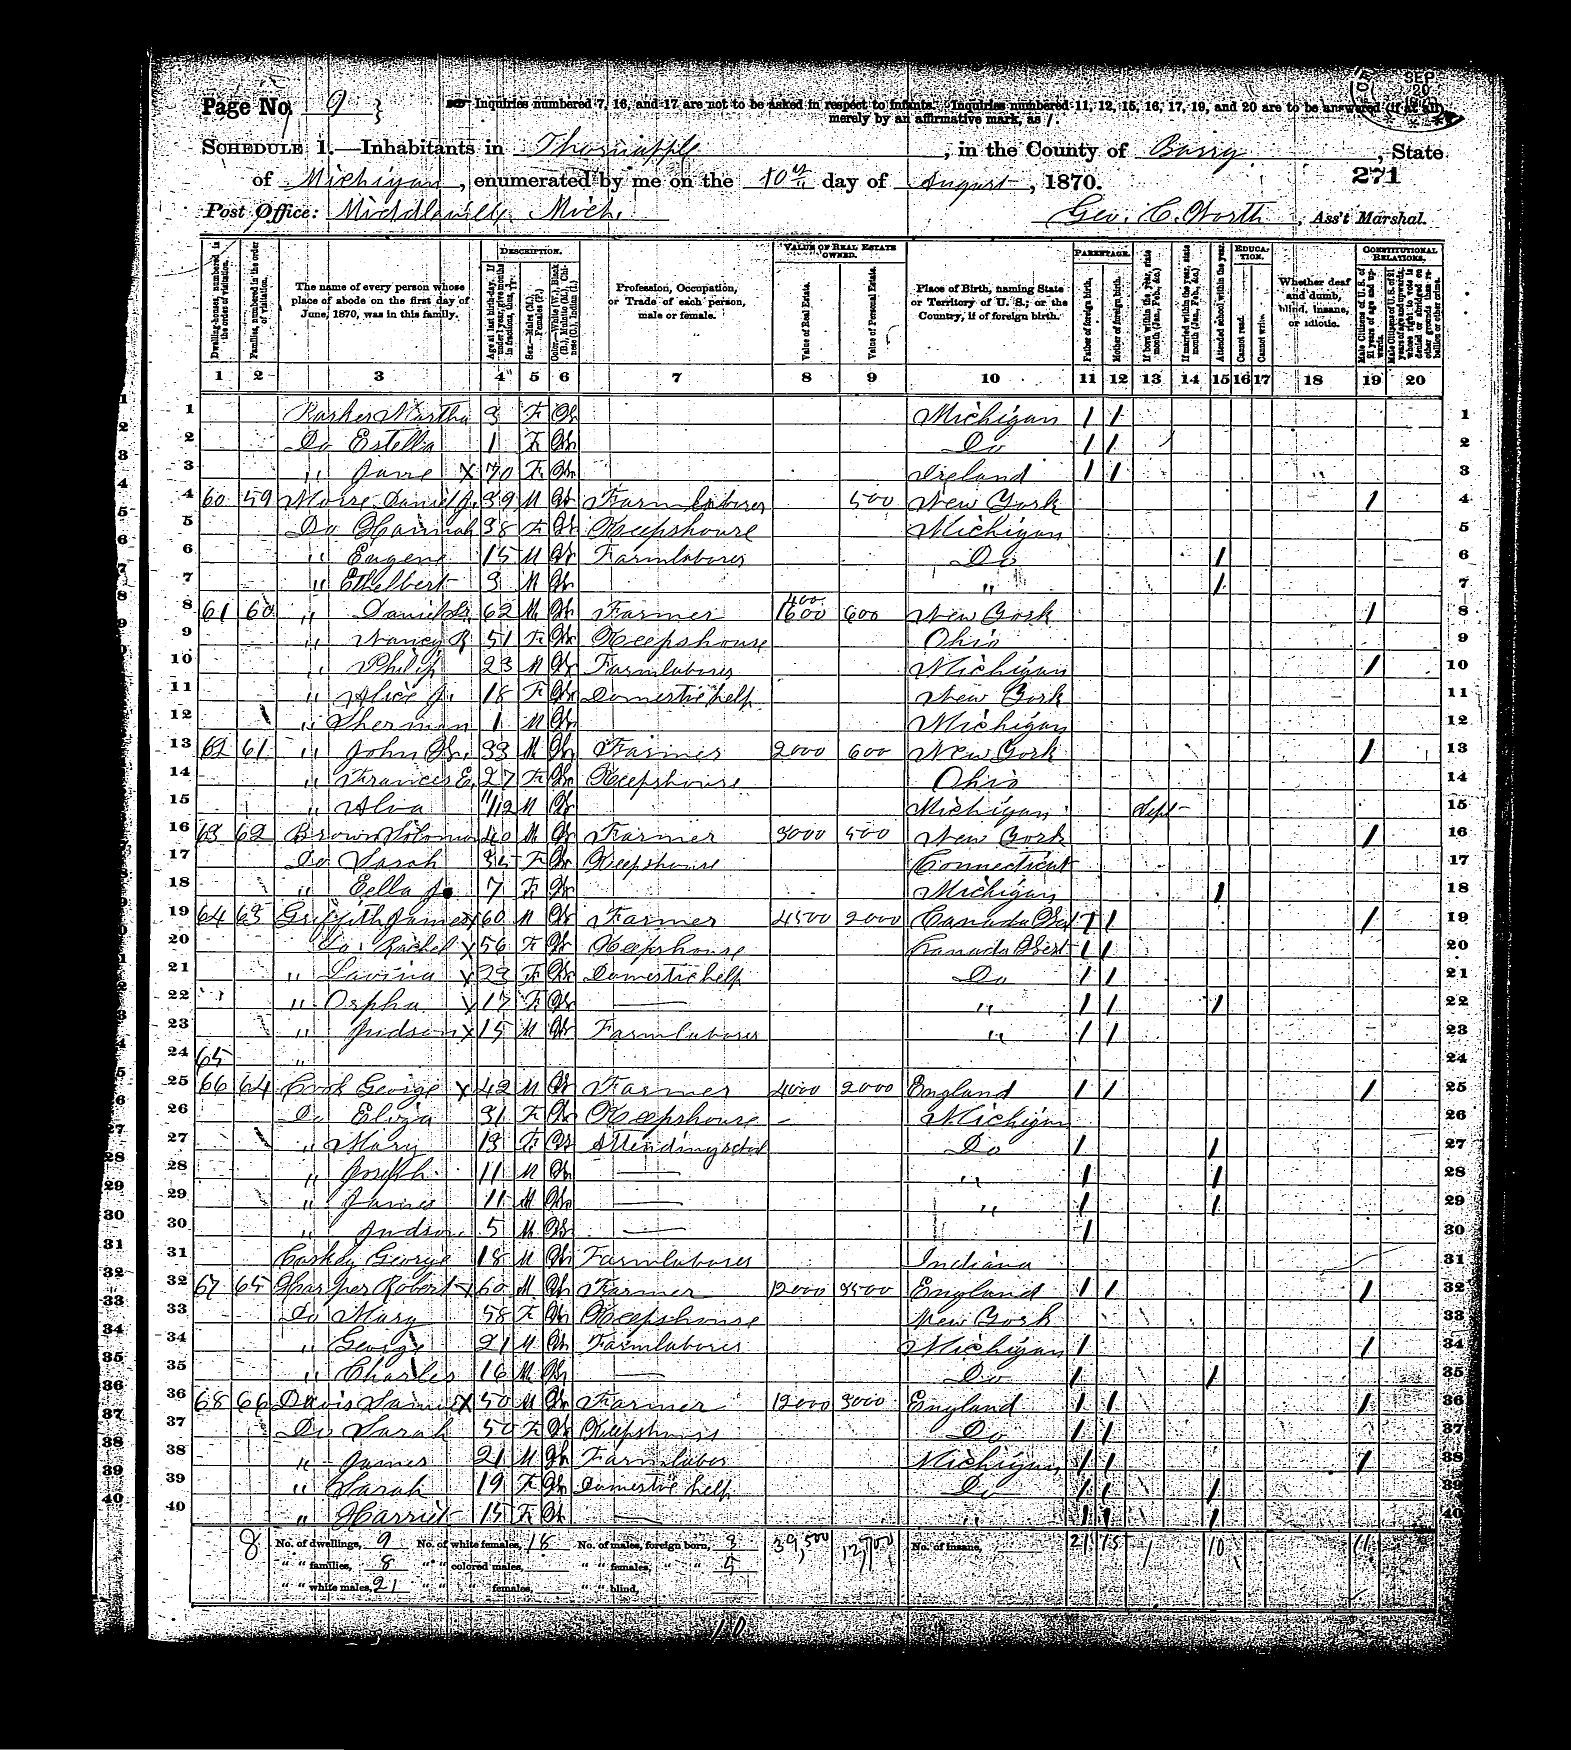 Page No. 9
Inquiries numbered 7, 16, and 17 are not to be asked in respect to infants. Inquiries numbered 11, 12, 15, 16, 17, 19, and 20 are to be answered (if at all)
merely by an affirmative mark, as /.
SCHEDULE 1.—Inhabitants in Thornapple, in the County of Barry, State
of Michigan, enumerated by me on the 10th day of August, 1870.
271
Post Office: Middleville Mich.
Geo. C. Worth, Ass't Marshal.
DESCRIPTION. VALUE OF REAL ESTATE OWNED. PARENTAGE. EDUCATION. CONSTITUTIONAL RELATIONS.
Dwelling-houses, numbered in the order of visitation. Families, numbered in the order of visitation. The name of every person whose place of abode on the first day of June, 1870, was in this family. Age at last birth-day. If under 1 year, give months in fractions, thus, 3/12. Sex.—Males (M.), Females (F.). Color.—White (W.), Black (B.), Mulatto (M.), Chinese (C.), Indian (I.). Profession, Occupation, or Trade of each person, male or female. Value of Real Estate. Value of Personal Estate. Place of Birth, naming State or Territory of U. S.; or the Country, if of foreign birth. Father of foreign birth. Mother of foreign birth. If born within the year, state month (Jan., Feb., &c.) If married within the year, state month (Jan., Feb., &c.) Attended school within the year. Cannot read. Cannot write. Whether deaf and dumb, blind, insane, or idiotic.
1 2 3 4 5 6 7 8 9 10 11 12 13 14 15 16 17 18 19 20
1 Martha 3 F W Michigan / / 1
2 Do Estella 1 F W Do / / 2
3 " Jane X 70 F W Ireland / / 3
4 60 59 Morse Daniel J. 39 M W Farm laborer 500 New York / 4
5 Do Hannah 38 F W Keeps house Michigan 5
6 " Eugene 15 M W Farm laborer Do / 6
7 " Ethelbert 9 M W " / 7
8 61 60 " Daniel 62 M W Farmer 1600 600 New York / 8
9 " Nancy R 51 F W Keeps house Ohio 9
10 " Philip 23 M W Farm laborer Michigan / 10
11 " Alice J. 18 F W Domestic help New York 11
12 " Sherman 1 M W Michigan 12
13 62 61 " John W. 33 M W Farmer 2000 600 New York / 13
14 " Frances E. 27 F W Keeps house Ohio 14
15 " Alva 11/12 M W Michigan Sept 15
16 63 62 Brown Solomon 40 M W Farmer 3000 500 New York / 16
17 Do Sarah F W Keeps house Connecticut 17
18 " Eella J. 7 F W Michigan / 18
19 64 63 Griffith James X 60 M W Farmer 4500 2000 Canada / / / 19
20 Do Rachel X 56 F W Keeps house Canada West / / 20
21 " Lavina X 23 F W Domestic help Do / / 21
22 " Orpha X 17 F W — " / / / 22
23 " Judson X 15 M W Farm laborer " / / 23
24 65 " 24
25 66 64 Cook George X 42 M W Farmer 4000 2000 England / / / 25
26 Do Eliza 31 F W Keeps house - Michigan 26
27 " Mary 13 F W Attending school Do / / 27
28 " Joseph 11 M W — " / / 28
29 " James 11 M W — " / / 29
30 " Judson 5 M W — / 30
31 George 18 M W Farm laborer Indiana 31
32 67 65 Harper Robert X 60 M W Farmer 12000 3500 England / / / 32
33 Do Mary 58 F W Keeps house New York 33
34 " George 21 M W Farm laborer Michigan / / 34
35 " Charles 16 M W — Do / / 35
36 68 66 Davis Samuel X 50 M W Farmer 12000 3000 England / / / 36
37 Do Sarah 50 F W Keeps house Do / / 37
38 " James 21 M W Farm labor Michigan / / / 38
39 " Sarah 19 F W Domestic help Do / / / 39
40 " Harriet 15 F W — " / / / 40
8 No. of dwellings, 9 No. of white females, 18 No. of males, foreign born, 3 39,500 12,700 No. of insane, 21 15 1 10 11
" " families, 8 " " colored males, " " females, " " 5
" " white males, 21 " " " females, " " blind,
10